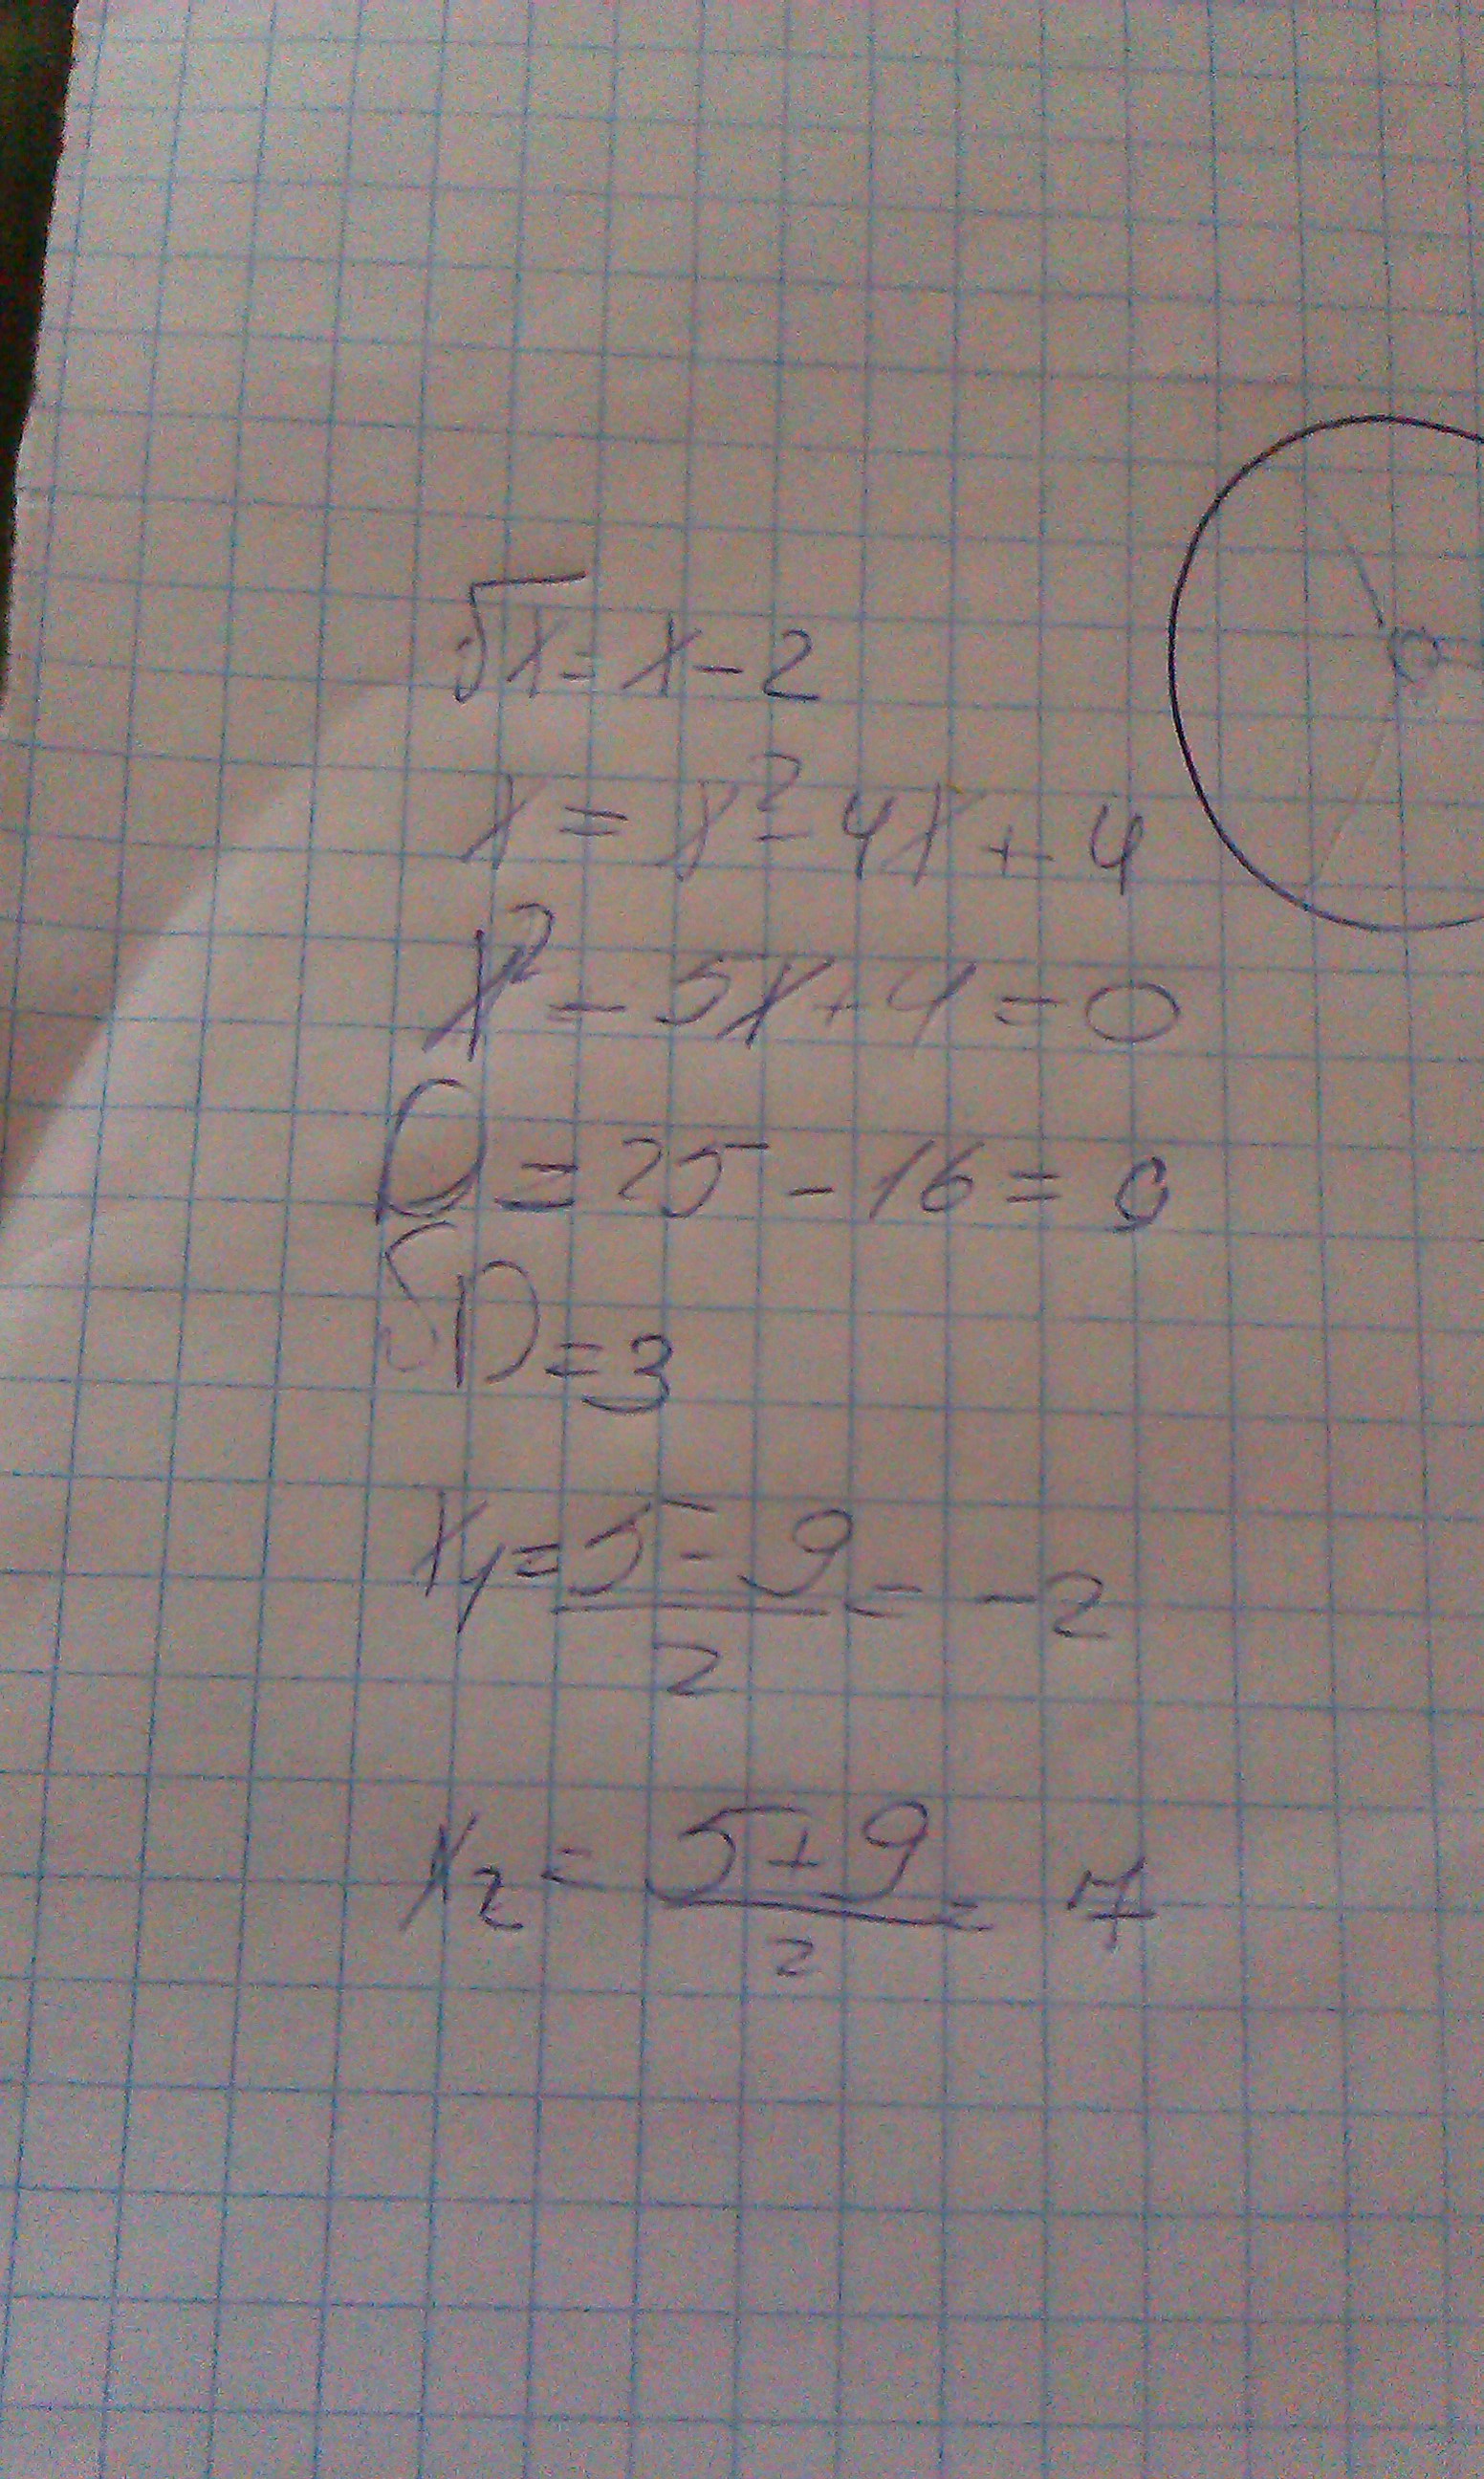 √x = x - 2
x = x² - 4x + 4
x² - 5x + 4 = 0
D = 25 - 16 = 9
√D = 3
x₁ = (5 - 9)/2 = -2
x₂ = (5 + 9)/2 = 7
O